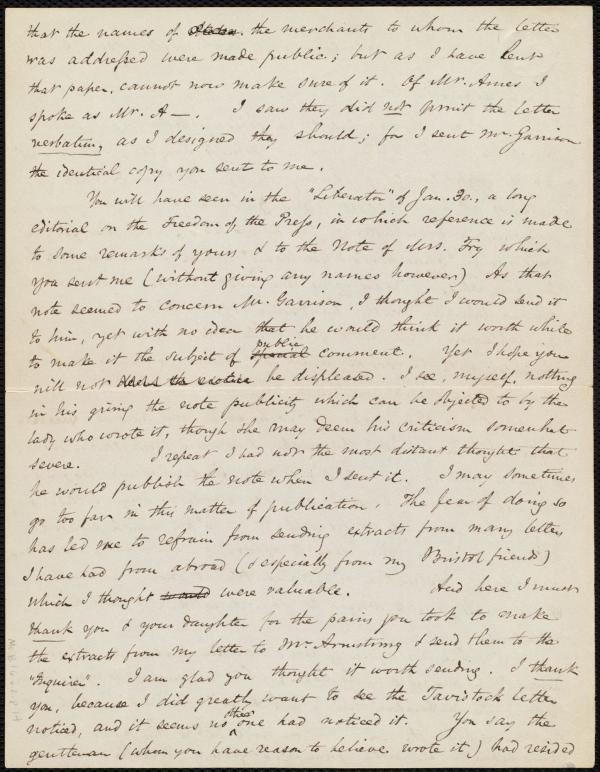 that the names of the merchants to whom the letter
was addressed were made public; but as I have lent
that paper, cannot now make sure of it. Of Mr. Ames I
spoke as Mr. A—. I saw they did not print the letter
verbatim, as I designed they should; for I sent Mr. Garrison
the identical copy you sent to me.
You will have seen in the "Liberator" of Jan. 30., a long
editorial on the Freedom of the Press, in which reference is made
to some remarks of yours & to the Note of Mrs. Fry which
you sent me (without giving any names however) As that
note seemed to concern Mr. Garrison, I thought I would send it
to him, yet with no idea that he would think it worth while
to make it the subject of public comment. Yet I hope you
will not be displeased. I see, myself, nothing
in his giving the note publicity which can be objected to by the
lady who wrote it, though she may deem his criticism somewhat
severe. I repeat I had not the most distant thought that
he would publish the note when I sent it. I may sometimes
go too far in this matter of publication. The fear of doing so
has led me to refrain from sending extracts from many letters
I have had from abroad (& especially from my Bristol friends)
which I thought were valuable. And here I must
thank you & your daughter for the pains you took to make
the extracts from my letter to Mr. Armstrong & send them to the
"Inquirer". I am glad you thought it worth sending. I thank
you, because I did greatly want to see the Tavistock letter
noticed, and it seems no other one had noticed it. You say the
gentleman (whom you have reason to believe wrote it) had resided